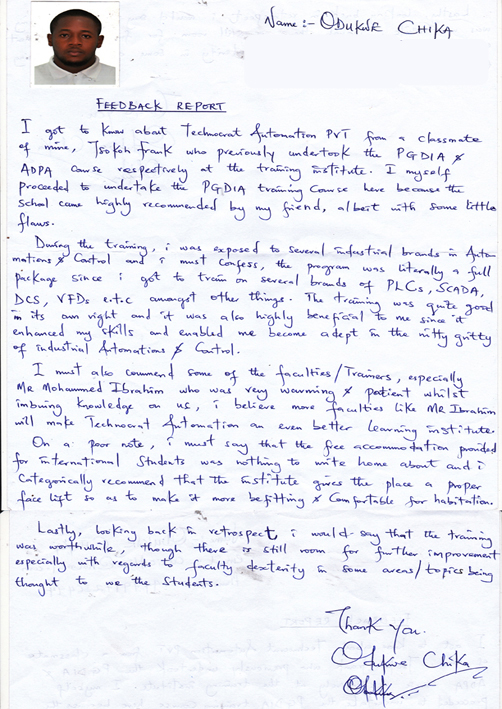 Name :- ODUKWE CHIKA
FEEDBACK REPORT
I got to know about Technocrat Automation PVT from a classmate
of mine, Tsokoh Frank who previously undertook the PGDIA &
ADPA course respectively at the training institute. I myself
proceeded to undertake the PGDIA training course here because the
school came highly recommended by my friend, albeit with some little
flaws.
During the training, i was exposed to several industrial brands in Auto-
mations & Control and i must confess, the program was literally a full
package since i got to train on several brands of PLCs, SCADA,
DCS, VFDs e.t.c amongst other things. The training was quite good
in its own right and it was also highly beneficial to me since it
enhanced my skills and enabled me become adept in the nitty gritty
of industrial Automations & Control.
I must also commend some of the faculties/Trainers, especially
Mr Mohammed Ibrahim who was very warming & patient whilst
imbuing knowledge on us, i believe more faculties like MR Ibrahim
will make Technocrat Automation an even better learning institute.
On a poor note, i must say that the free accommodation provided
for international students was nothing to write home about and i
Categorically recommend that the institute gives the place a proper
face lift so as to make it more befitting & Comfortable for habitation.
Lastly, looking back in retrospect, i would say that the training
was worthwhile, though there is still room for further improvement
especially with regards to faculty dexterity in some areas/topics being
thought to we the students.
Thank you.
Odukwe Chika